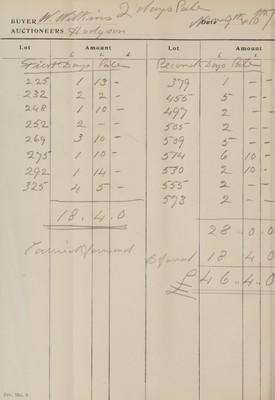 BUYER W. Watkins 2 Days Sale DATE Nov 9th & 10th
AUCTIONEERS Hodgson
Lot Amount Lot Amount
£ s. d. £ s. d.
First Days Sale Second Days Sale
225 1 13 - 379 1 - -
232 2 2 - 455 5 - -
248 1 10 - 497 2 - -
252 2 - - 505 2 - -
269 3 10 - 509 5 - -
275 1 10 - 514 6 10 -
292 1 14 - 530 2 10 -
325 4 5 - 555 2 - -
573 2 - -
18 . 4 . 0
28 . 0 . 0
Carried forward B forward 18 4 0
£ 46 . 4 . 0